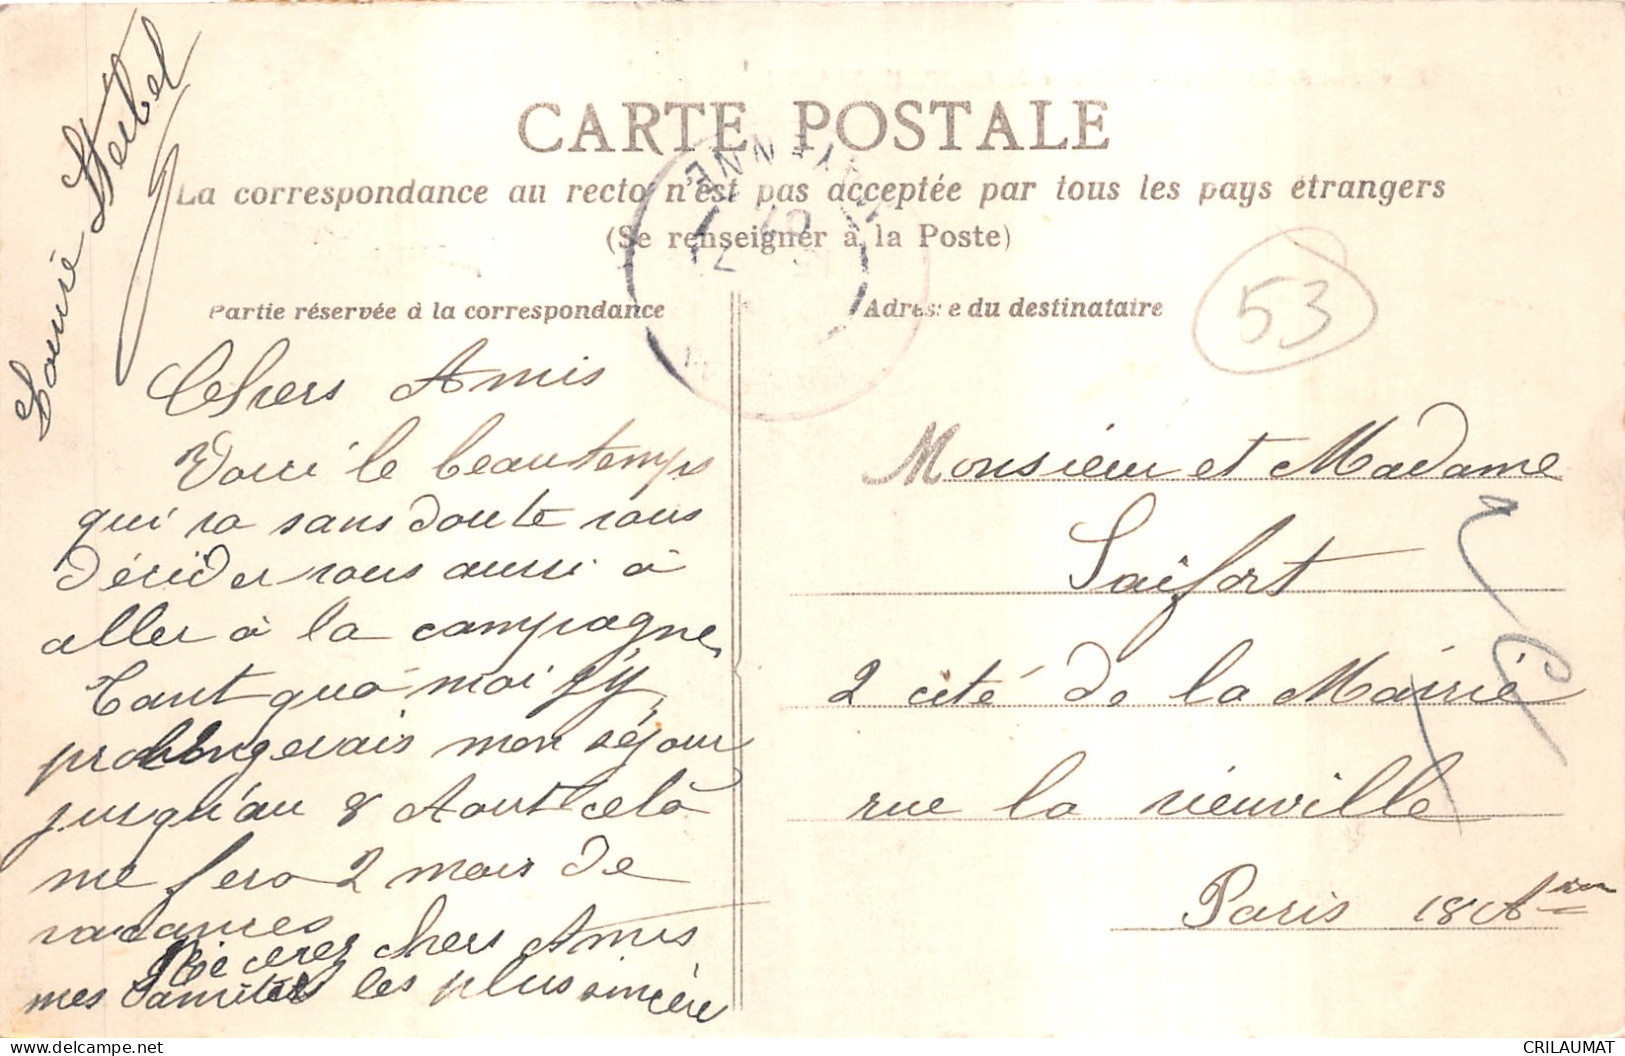 CARTE POSTALE
La correspondance au recto n'est pas acceptée par tous les pays étrangers
(Se renseigner à la Poste)
Partie réservée à la correspondance
Adresse du destinataire
53
Chers Amis
Voici le beau temps
qui va sans doute vous
décider vous aussi à
aller à la campagne
Tant quà moi j'y
prolongerais mon séjour
jusqu'au 8 Aout celà
me fera 2 mois de
vacances
Recevez chers Amis
mes amitiés les plus sincère
Louise Sterbel
Monsieur et Madame
Saifort
2 cité de la Mairie
rue la vieuville
Paris 18 Arr
CRILAUMAT